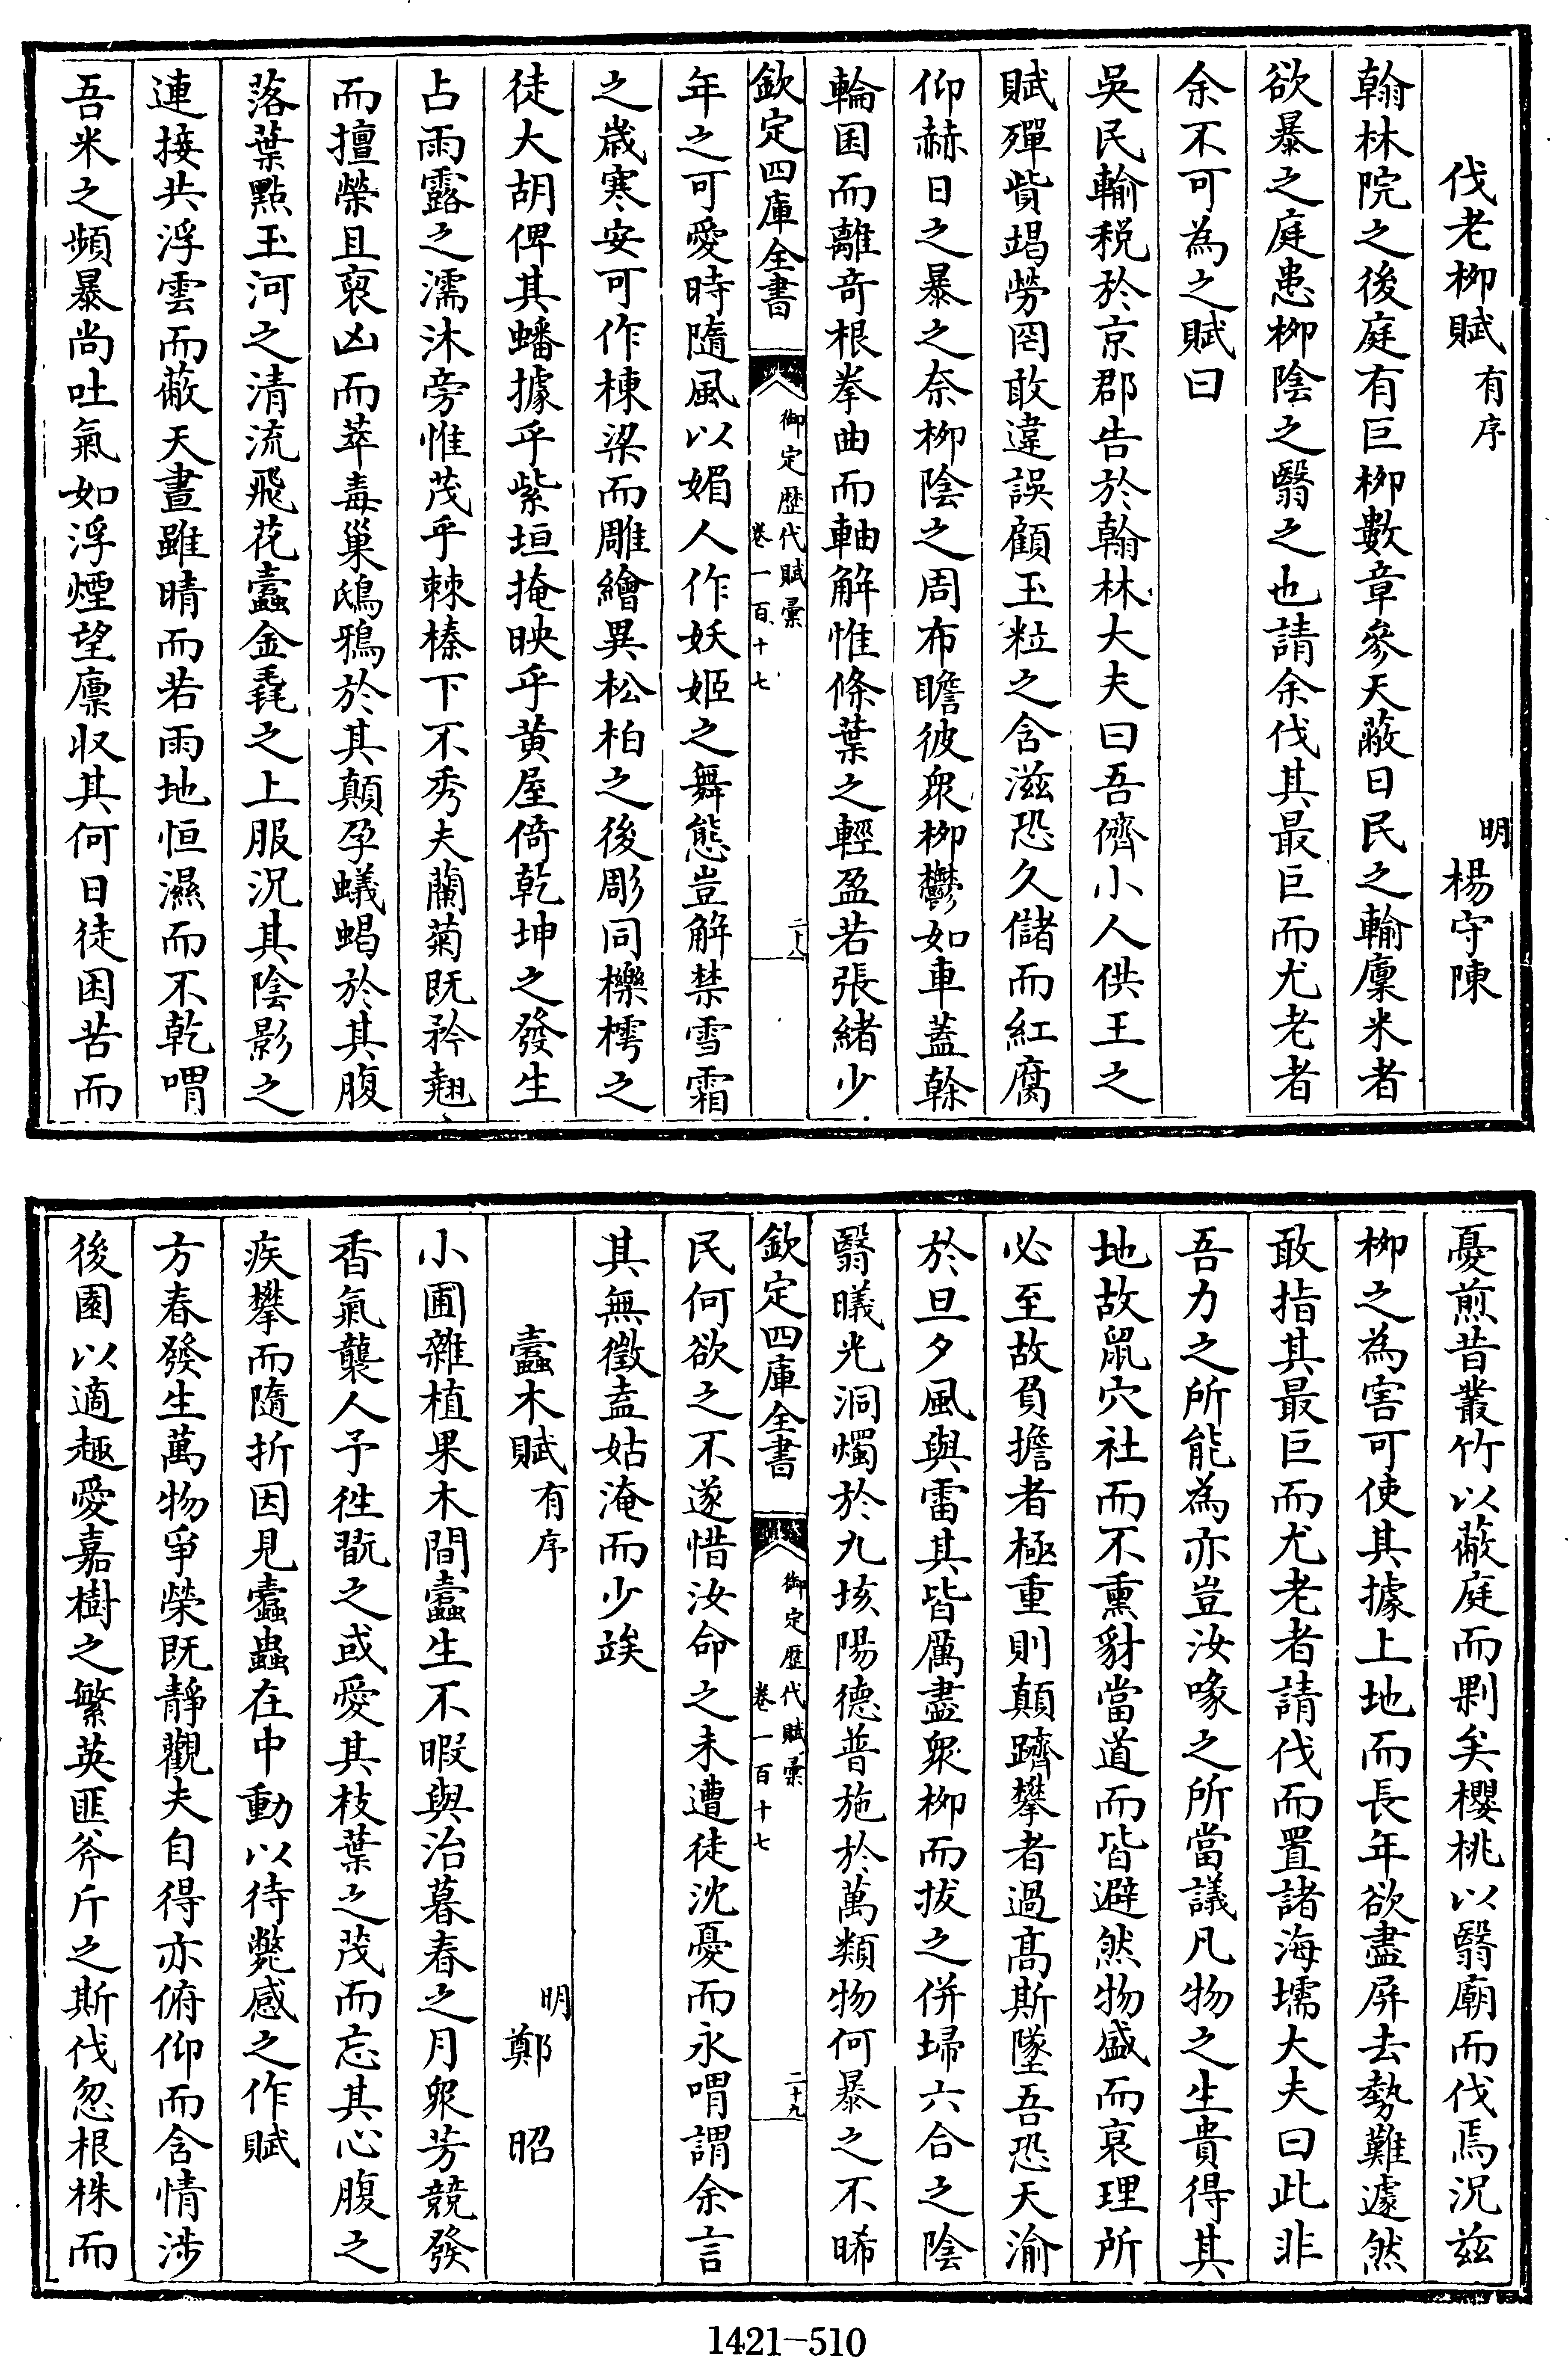 伐老柳賦有序 明楊守陳
翰林院之後庭有巨柳數章參天蔽日民之輸廩米者
欲暴之庭患柳陰之翳之也請余伐其最巨而尤老者
余不可為之賦曰
吳民輸税於京郡告於翰林大夫曰吾儕小人供王之
賦殫貲竭勞罔敢違誤顧玉粒之含滋恐久儲而紅腐
仰赫日之暴之奈柳陰之周布瞻彼衆柳鬱如車蓋榦
輪囷而離奇根拳曲而軸解惟條葉之輕盈若張緒少
欽定四庫全書 御定歴代賦彚 卷一百十七 二十八
年之可愛時隨風以媚人作妖姬之舞態豈解禁雪霜
之歲寒安可作棟梁而雕繪異松柏之後彫同櫟樗之
徒大胡俾其蟠據乎紫垣掩映乎黄屋倚乾坤之發生
占雨露之濡沐旁惟茂乎棘榛下不秀夫蘭菊既矜翹
而擅榮且裒凶而萃毒巢鴟鴉於其顛孕蟻蝎於其腹
落葉點玉河之清流飛花蠹金毳之上服況其陰影之
連接共浮雲而蔽天晝雖晴而若雨地恒濕而不乾喟
吾米之頻暴尚吐氣如浮煙望廪収其何日徒困苦而
憂煎昔叢竹以蔽庭而剿矣櫻桃以翳廟而伐焉況兹
柳之為害可使其據上地而長年欲盡屏去勢難遽然
敢指其最巨而尤老者請伐而置諸海壖大夫曰此非
吾力之所能為亦豈汝喙之所當議凡物之生貴得其
地故鼠穴社而不熏豺當道而皆避然物盛而衰理所
必至故負擔者極重則顛躋攀者過高斯墜吾恐天渝
於旦夕風與雷其皆厲盡衆柳而拔之併埽六合之陰
翳曦光洞燭於九垓陽德普施於萬類物何暴之不晞
欽定四庫全書 御定歴代賦彚 卷一百十七 二十九
民何欲之不遂惜汝命之未遭徒沈憂而永喟謂余言
其無徵盍姑淹而少竢
蠹木賦有序 明鄭昭
小圃雜植果木間蠹生不暇與治暮春之月衆芳競發
香氣襲人予徃翫之或愛其枝葉之茂而忘其心腹之
疾攀而隨折因見蠹蟲在中動以待斃感之作賦
方春發生萬物爭榮既靜觀夫自得亦俯仰而含情涉
後園以適趣愛嘉樹之繁英匪斧斤之斯伐忽根株而
1421-510